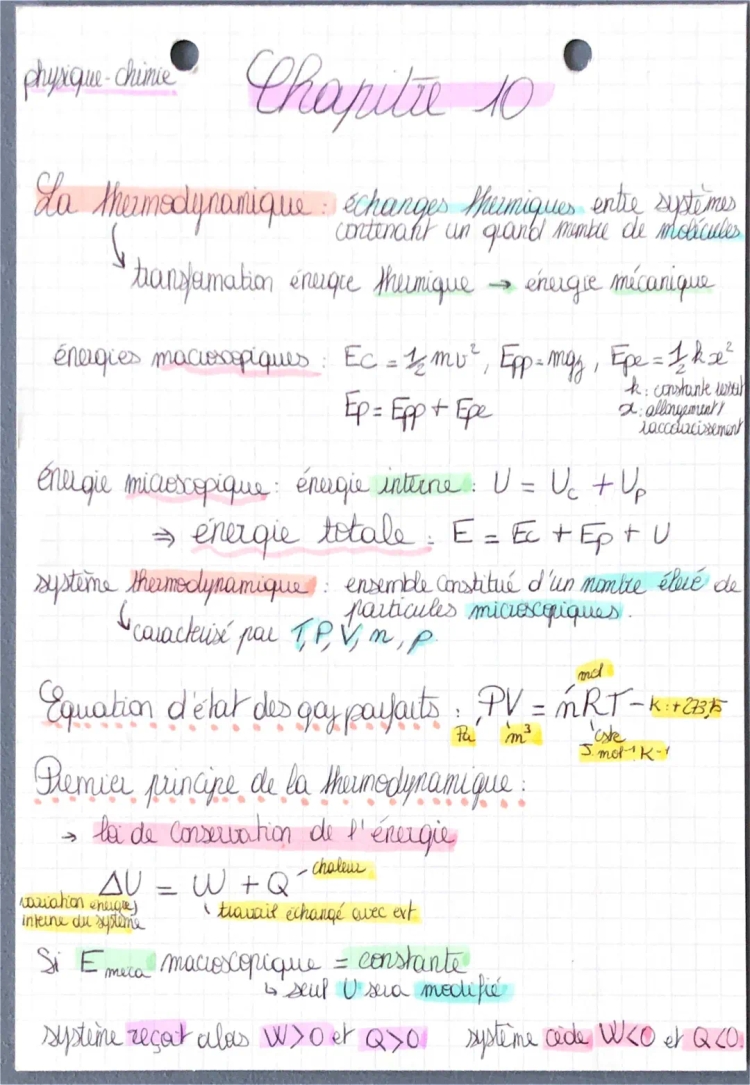 physique-chimie
Chapitre 10
La thermodynamique : échanges thermiques entre systèmes
contenant un grand nombre de molécules
transformation énergie thermique → énergie mécanique
énergies macroscopiques : Ec = 1/2 mv², Epp = mgz, Epe = 1/2 k x²
k : constante ressort
x : allongement/
raccourcissement
Ep = Epp + Epe
énergie microscopique : énergie interne : U = Uc + Up
⇒ énergie totale : E = Ec + Ep + U
système thermodynamique : ensemble constitué d'un nombre élevé de
particules microscopiques.
↳ caractérisé par T, P, V, n, ρ
mol
Equation d'état des gaz parfaits : PV = nRT – K : + 273,15
Pa m³ cste
J. mol⁻¹ K⁻¹
Premier principe de la thermodynamique :
→ loi de conservation de l'énergie
chaleur
ΔU = W + Q
variation énergie
interne du système
travail échangé avec ext
Si E meca macroscopique = constante
↳ seul U sera modifié
système reçoit alors W>0 et Q>0 système cède W<0 et Q<0.